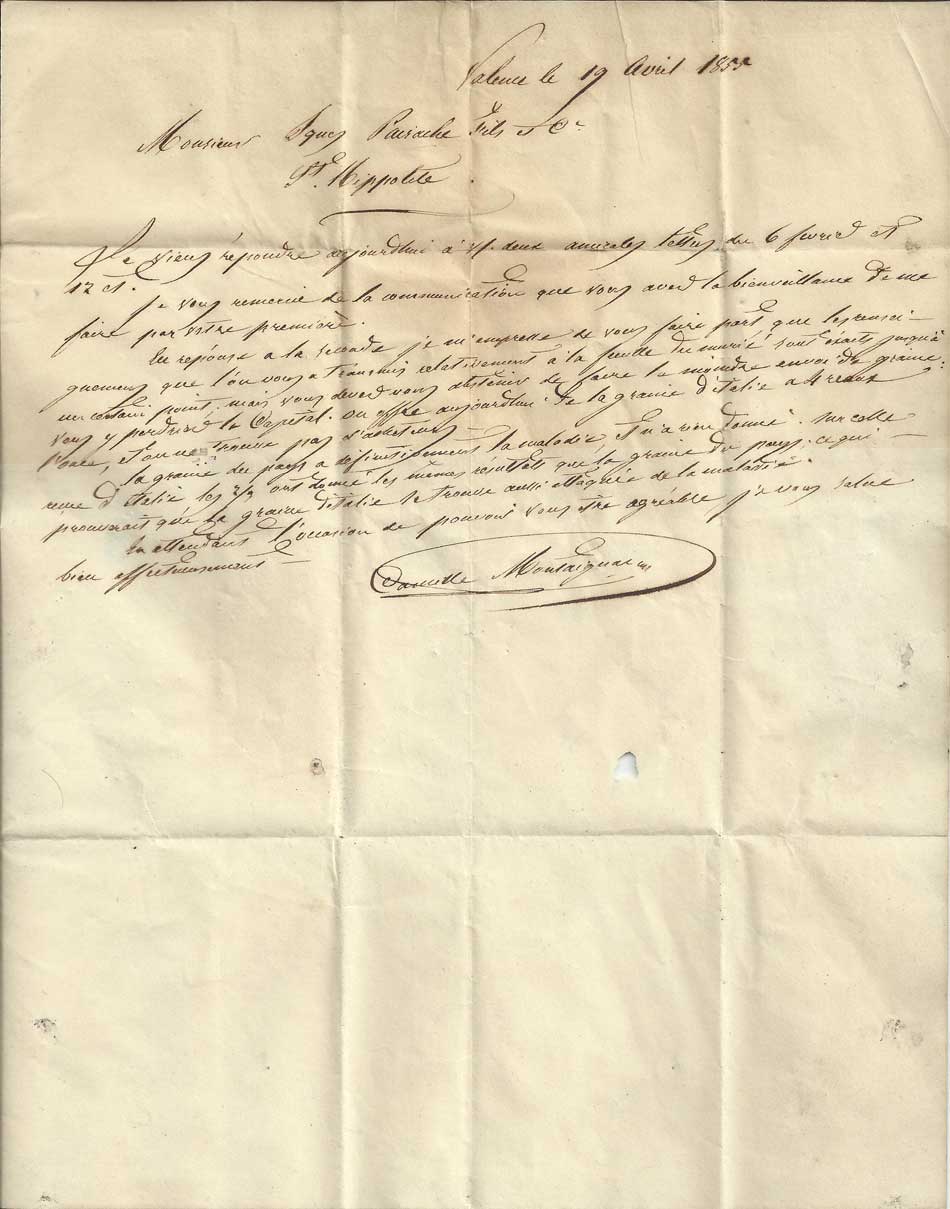 Valence le 19 Avril 1855
Monsieur Jques Pairache Fils et Cie
St. Hippolite
Je viens répondre aujourdhui à vs. deux amicales lettres du 6 fevrier et
12 ct.
Je vous remercie de la communication que vous avez la bienveillance de me
faire par votre première.
En réponse a la seconde je m'empresse de vous faire part que les rensei-
gnemens que l'on vous a transmis relativement à la feuille du murié sont exacts jusqu'à
un certain point, mais vous devez vous abstenir de faire le moindre envoi de graine
vous y perdriez le Capital. on offre aujourdhui de la graine d'italie a 4 francs
l'once, et on ne trouve pas d'acheteurs
la graine du pays a définitivement la maladie, et n'a rien donné. sur celle
venue d'italie les 2/3 ont donné les mêmes résultats que la graine du pays; ce qui
prouverait que la graine d'italie se trouve aussi attaquée de la maladie.
En attendant l'occasion de pouvoir vous être agréable je vous salue
bien affectueusement
Camille Montaignac